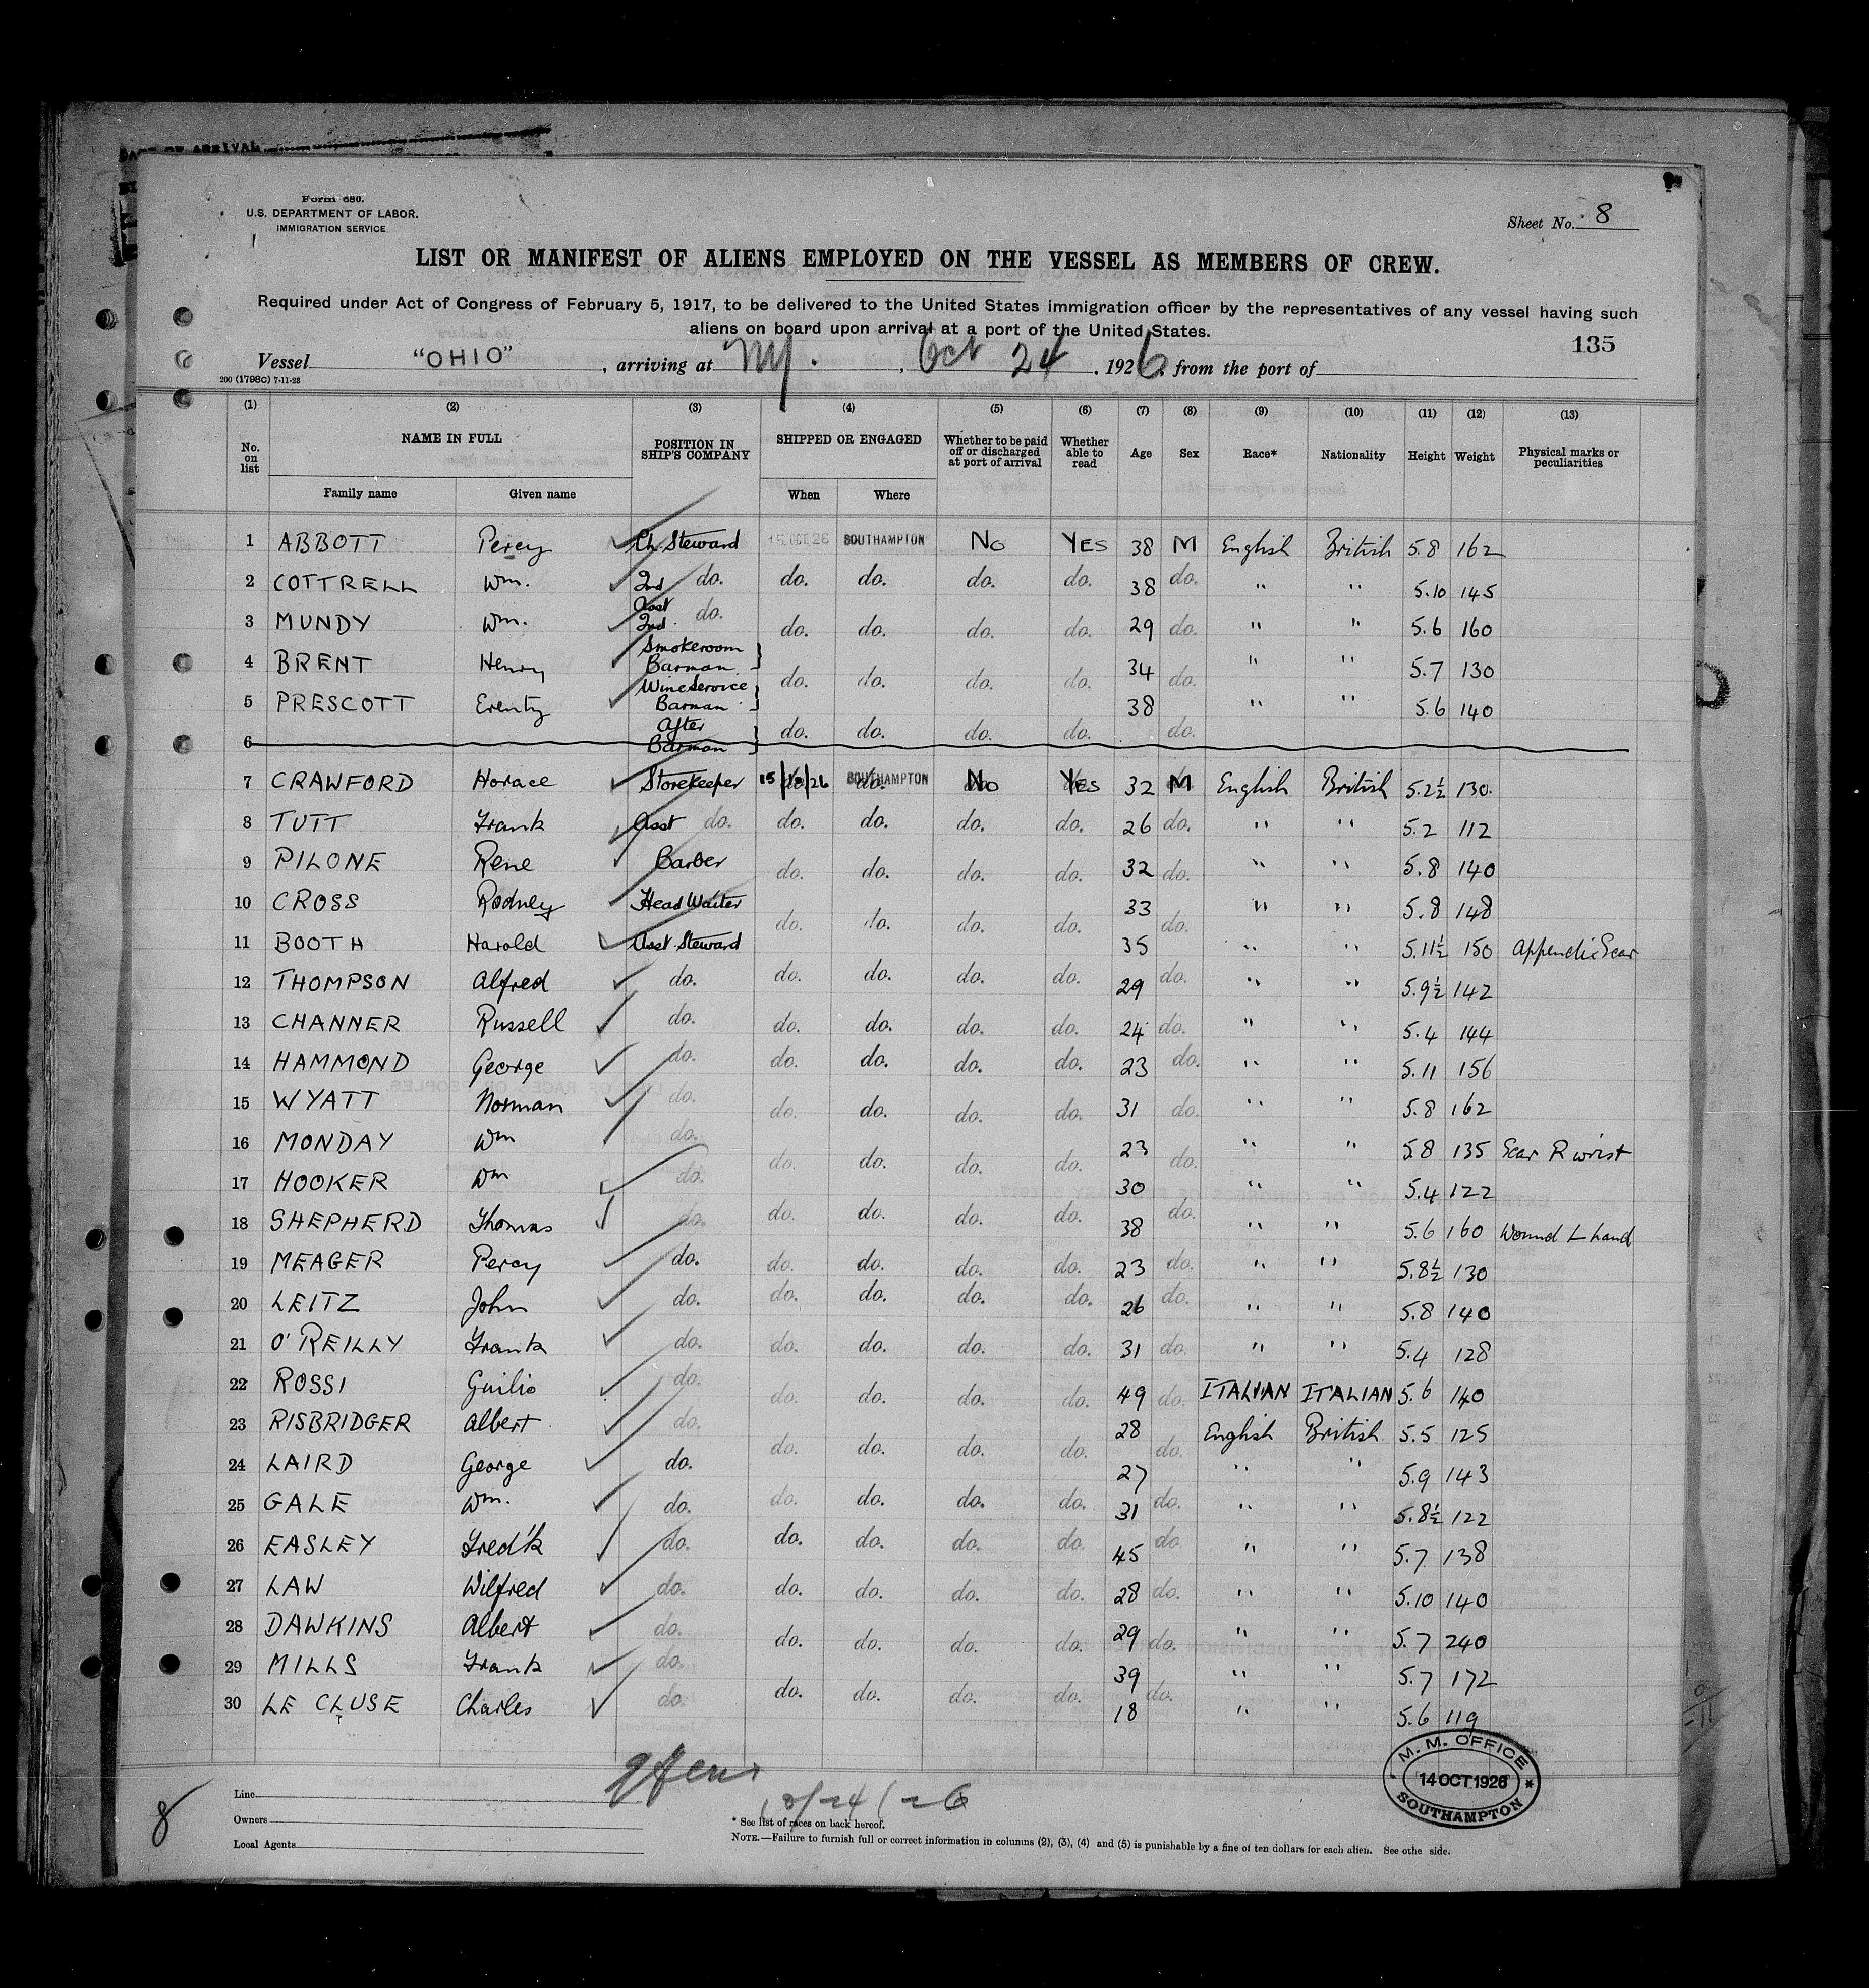 Form 680.
U.S. DEPARTMENT OF LABOR.
IMMIGRATION SERVICE
Sheet No. 8
LIST OR MANIFEST OF ALIENS EMPLOYED ON THE VESSEL AS MEMBERS OF CREW.
Required under Act of Congress of February 5, 1917, to be delivered to the United States immigration officer by the representatives of any vessel having such
aliens on board upon arrival at a port of the United States.
135
Vessel "OHIO", arriving at NY., Oct 24, 1926, from the port of
200 (1798C) 7-11-23
(1) (2) (3) (4) (5) (6) (7) (8) (9) (10) (11) (12) (13)
No. on list NAME IN FULL POSITION IN SHIP'S COMPANY SHIPPED OR ENGAGED Whether to be paid off or discharged at port of arrival Whether able to read Age Sex Race* Nationality Height Weight Physical marks or peculiarities
Family name Given name When Where
1 ABBOTT Percy Ch. Steward 15 OCT 26 SOUTHAMPTON No YES 38 M English British 5.8 162
2 COTTRELL Wm. 2nd do. do. do. do. do. 38 do. " " 5.10 145
3 MUNDY Wm. Asst 2nd. do. do. do. do. do. 29 do. " " 5.6 160
4 BRENT Henry Smokeroom Barman do. do. do. do. 34 do. " " 5.7 130
5 PRESCOTT Wine Service Barman 38 " " 5.6 140
6 After Barman do. do. do. do. do.
7 CRAWFORD Horace Storekeeper 15/10/26 SOUTHAMPTON No YES 32 M English British 5.2½ 130.
8 TUTT Frank Asst do. do. do. do. do. 26 do. " " 5.2 112
9 PILONE Rene Barber do. do. do. do. 32 do. " " 5.8 140
10 CROSS Rodney Head Waiter do. do. do. do. 33 do. " " 5.8 148
11 BOOTH Harold Asst. Steward 35 " " 5.11½ 150 Appendix Scar
12 THOMPSON Alfred do. do. do. do. do. 29 do. " " 5.9½ 142
13 CHANNER Russell do. do. do. do. do. 24 do. " " 5.4 144
14 HAMMOND George do. do. do. do. do. 23 do. " " 5.11 156
15 WYATT Norman do. do. do. do. do. 31 do. " " 5.8 162
16 MONDAY Wm do. do. do. do. do. 23 do. " " 5.8 135 Scar R wrist
17 HOOKER Wm do. 30 " " 5.4 122
18 SHEPHERD Thomas do. do. do. do. do. 38 do. " " 5.6 160 Wound L hand
19 MEAGER Percy do. do. do. do. do. 23 do. " " 5.8½ 130
20 LEITZ John do. do. do. do. do. 26 do. " " 5.8 140
21 O'REILLY Frank do. do. do. do. do. 31 do. " " 5.4 128
22 ROSSI Guilio do. do. do. do. do. 49 do. ITALIAN ITALIAN 5.6 140
23 RISBRIDGER Albert do. do. do. do. do. 28 do. English British 5.5 125
24 LAIRD George do. 27 " " 5.9 143
25 GALE Wm. do. do. do. do. do. 31 do. " " 5.8½ 122
26 EASLEY Fred'k do. do. do. do. do. 45 do. " " 5.7 138
27 LAW Wilfred do. do. do. do. do. 28 do. " " 5.10 140
28 DAWKINS Albert do. do. do. do. do. 29 do. " " 5.7 240
29 MILLS Frank do. 39 " " 5.7 172
30 LE CLUSE Charles do. do. do. do. do. 18 do. " " 5.6 119
M. M. OFFICE
14 OCT 1926
SOUTHAMPTON
10/24/26
8
Line
Owners
Local Agents
* See list of races on back hereof.
NOTE.—Failure to furnish full or correct information in columns (2), (3), (4) and (5) is punishable by a fine of ten dollars for each alien. See othe side.